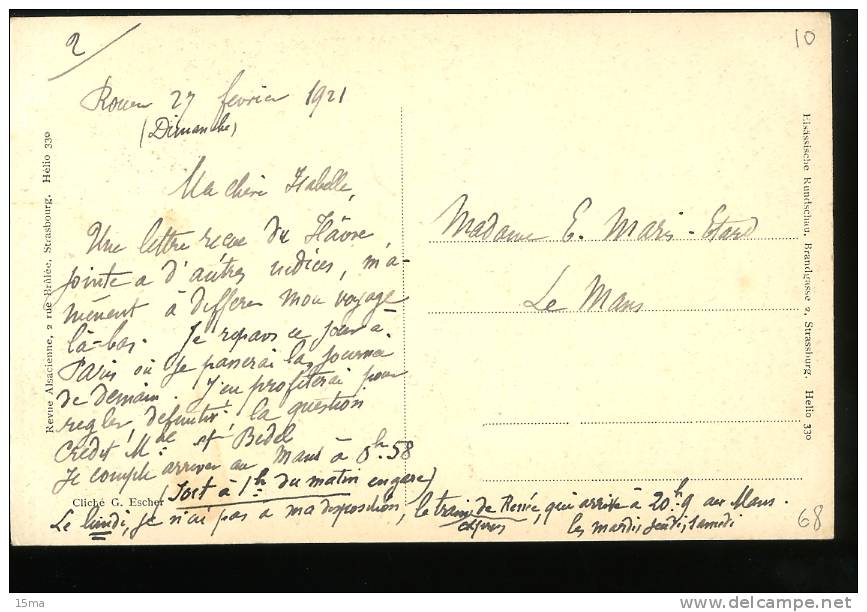 2
10
Rouen 27 fevrier 1921
(Dimanche)
Ma chère Isabelle,
Une lettre reçue du Hâvre,
jointe a d'autres indices, m'a-
mènent à differer mon voyage
là-bas. Je repars ce jour à
Paris où je passerai la journée
de demain. J'en profiterai pour
regler, definitivt la question
Credit Mel et Bidel
Je compte arriver au Mans à 0h.58
(soit à 1h du matin en gare)
Le lundi, je n'ai pas a ma disposition, le train de Renée, qui arrive à 20h9 au Mans.
les mardis, jeudis, samedi
Madame E. Maris-Etard
Le Mans
Revue Alsacienne, 2 rue Brûlée, Strasbourg. Hélio 330
Elsässische Rundschau, Brandgasse 2, Strassburg. Helio 330
Cliché G. Escher
68
15ma
delcampe.net